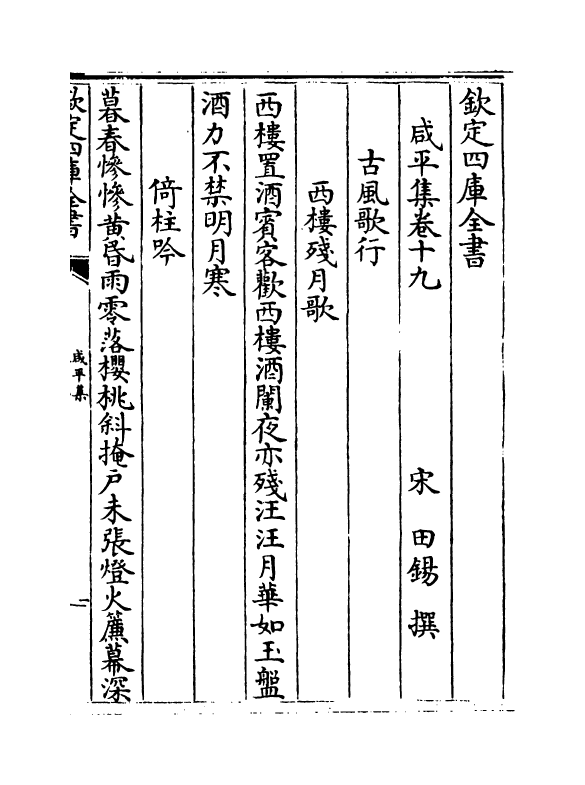 欽定四庫全書
咸平集卷十九　宋　田錫　撰
古風歌行
西樓殘月歌
西樓置酒賓客歡西樓酒闌夜亦殘汪汪月華如玉盤
酒力不禁明月寒
倚柱吟
暮春慘慘黄昏雨零落櫻桃斜掩户未張燈火簾幕深
欽定四庫全書
咸平集
一